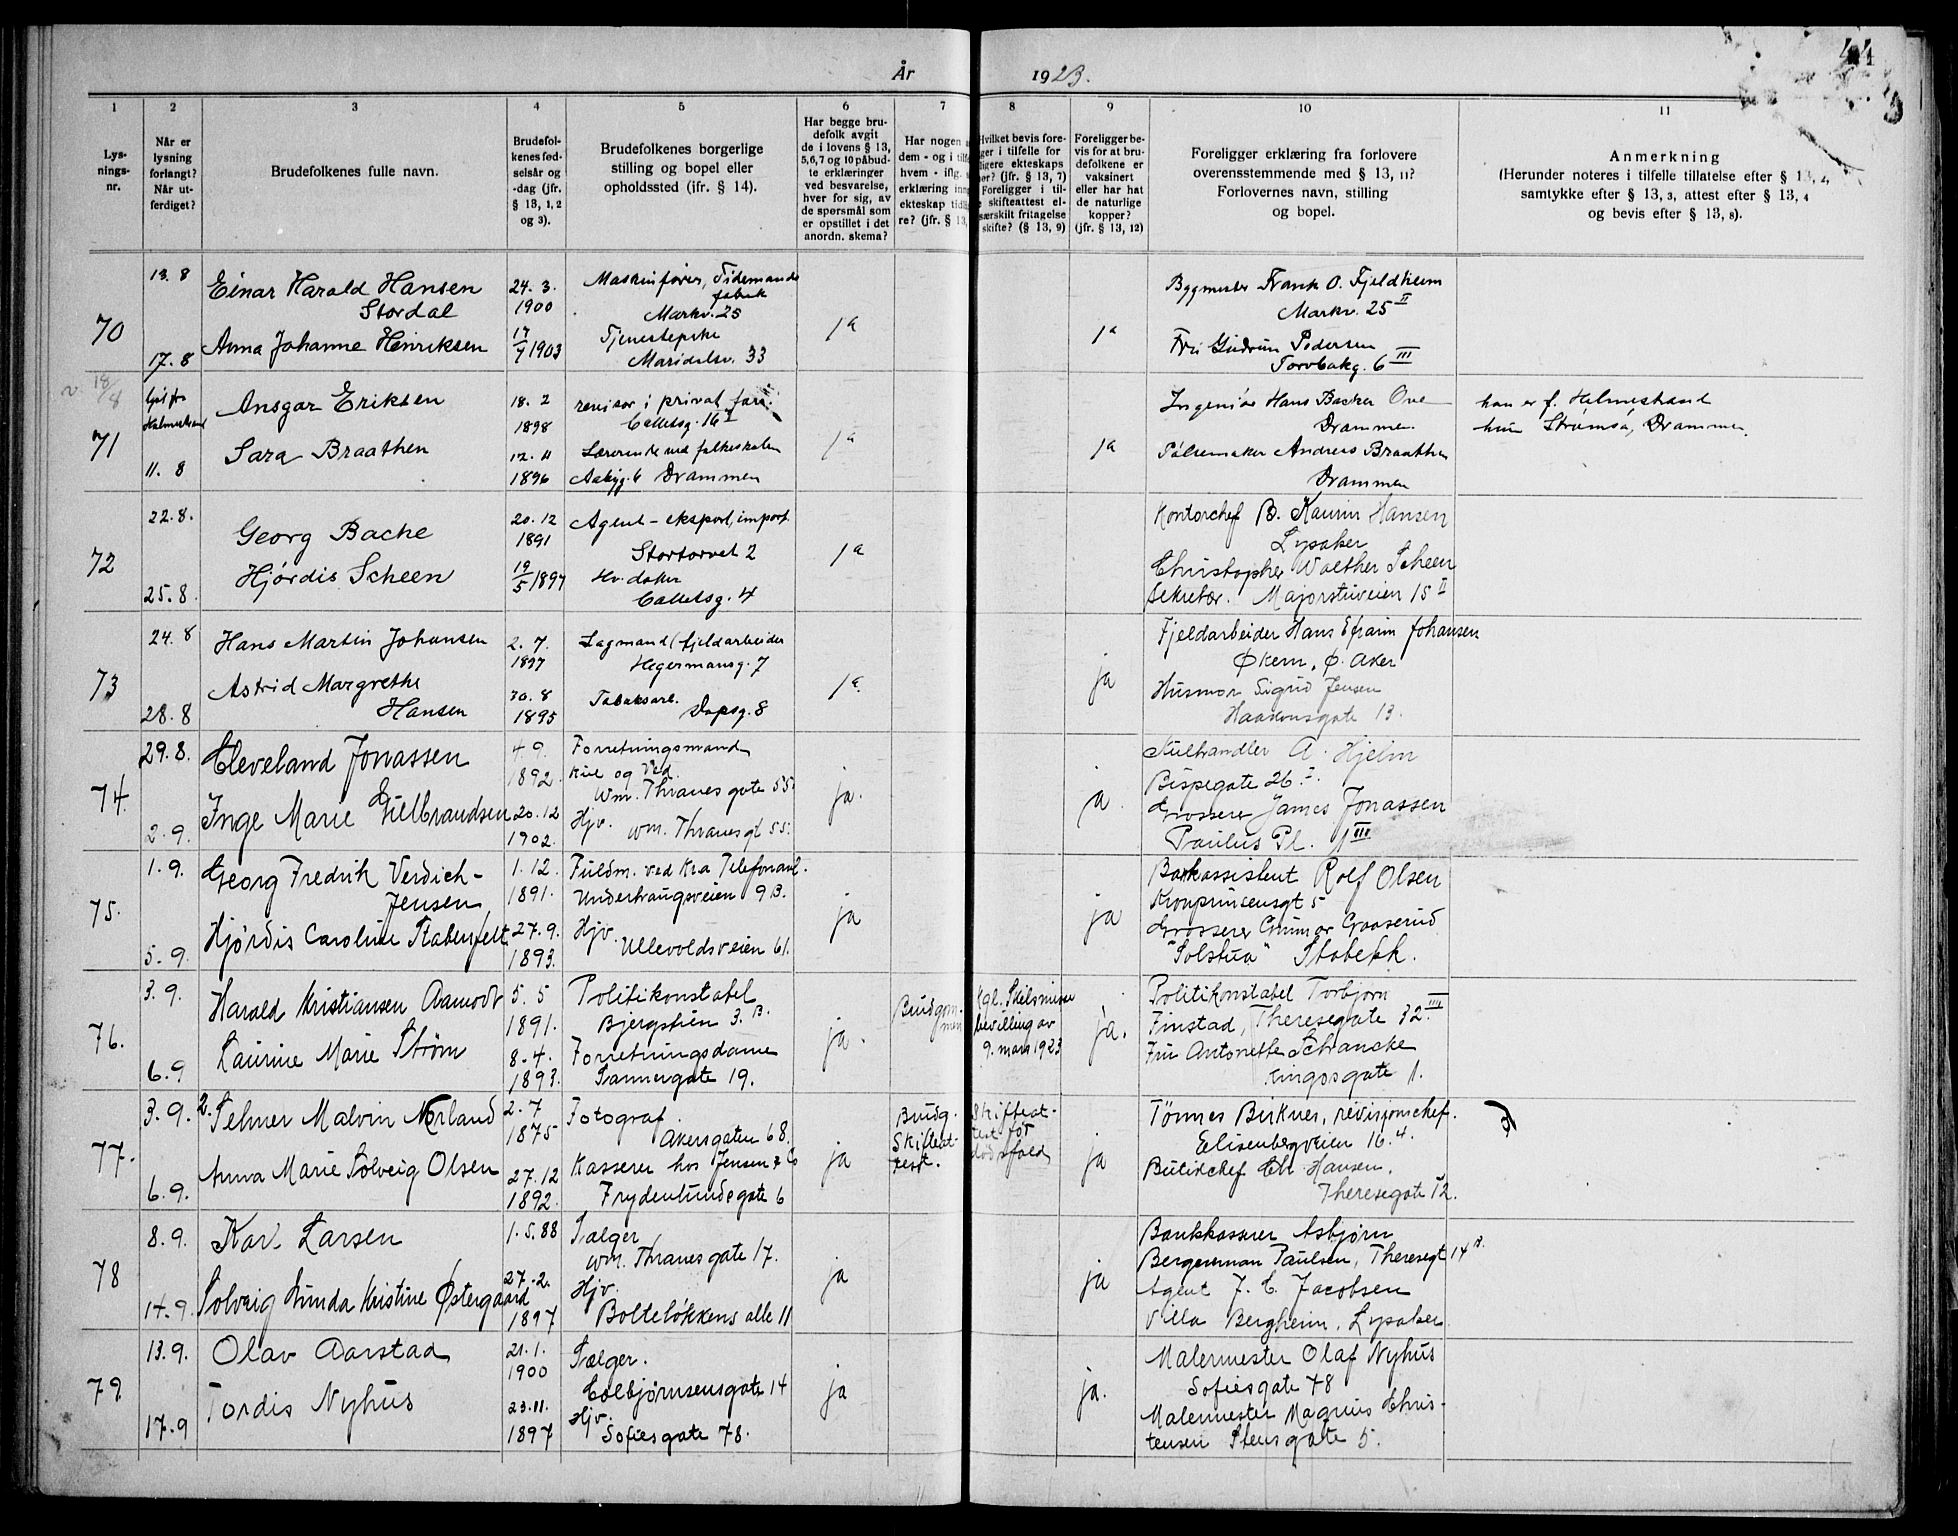 År 1923.
44
1 2 3 4 5 6 7 8 9 10 11
Lys-
nings-
nr.
Når er
lysning
forlangt?
Når ut-
ferdiget?
Brudefolkenes fulle navn.
Brudefol-
kenes fød-
selsår og
-dag (jfr.
§ 13, 1, 2
og 3).
Brudefolkenes borgerlige
stilling og bopel eller
opholdssted (jfr. § 14).
Har begge bru-
defolk avgit
de i lovens § 13,
5,6,7 og 10 påbud-
te erklæringer
ved besvarelse,
hver for sig, av
de spørsmål som
er opstillet i det
anordn. skema?
Har nogen
dem - og i
hvem - iflg.
erklæring
ekteskap
re? (jfr. § 13,
Hvilket bevis fore-
ger i tilfelle for
ligere ekteskaps
(jfr. § 13, 7)
Foreligger i til-
skifteattest el-
særskilt fritagelse
skifte? (§ 13, 9)
Foreligger be-
vis for at bru-
defolkene er
vaksinert
eller har hat
de naturlige
kopper?
(jfr. § 13, 12)
Foreligger erklæring fra forlovere
overensstemmende med § 13, 11?
Forlovernes navn, stilling
og bopel.
Anmerkning
(Herunder noteres i tilfelle tillatelse efter § 13, 2,
samtykke efter § 13, 3, attest efter § 13, 4
og bevis efter § 13, 8).
70
13. 8
17. 8
Einar Harald Hansen
Stordal
Anna Johanne Henriksen
24. 3.
1900
17/7 1903
Maskinfører, Tidemands
fabrik
Markv. 25
Tjenestepike
Maridalsv. 33
ja
ja
Bygmester Frank O. Fjeldheim
Markv. 25 II
Fru Gudrun Pedersen
Torvbakg. 6 III
18/8
71
11. 8
Ansgar Eriksen
Sara Braathen
18. 2
1898
12. 11
1896
revisor i privat
Colletsg. 16 I
Lærerinde ved folkeskolen
Drammen
ja
ja
Ingeniør Hans Backer Ove
Drammen.
Pølsemaker Andreas Braathen
Drammen
han er f. Holmestrand
hun Strømsø, Drammen.
72
22. 8.
25. 8.
Georg Bache
Hjørdis Scheen
20. 12
1891
19/5 1897
Agent - eksport, import
Stortorvet 2
Hv. dater
Colletsg. 4
ja
Kontorchef B. Kaurin Hansen
Lysaker
Christopher Walther Scheen
Sekretær. Majorstuveien 15 II
73
24. 8
28. 8
Hans Martin Johansen
Astrid Margrethe
Hansen
2. 7.
1897
30. 8
1895
Lagmand (fjeldarbeider
Hegermansg. 7
Tobaksarb.
Dapsg. 8
ja
ja
Fjeldarbeider Hans Efraim Johansen
Økern, Ø. Aker
Husmor Sigrid Jensen
Haakonsgate 13.
74.
29. 8.
2. 9.
Cleveland Jonassen
Inge Marie Gulbrandsen
4 9.
1892.
20. 12
1902.
Forretningsmand
Kul og Ved.
Wm. Thranes gate 55.
Hjv. Wm. Thranes gt 55.
ja.
ja.
Kulhandler A. Hjelm
Bispegate 26. I
Grosserer James Jonassen
Paulus Pl. 1 III
75.
1. 9.
5. 9.
Georg Fredrik Verdich-
Jensen
Hjørdis Caroline Stabenfelt
1. 12.
1891.
27. 9.
1893.
Fuldm. ved Kra Telefonanl.
Underhaugsveien 9 B.
Hjv.
Ullevoldsveien 61.
ja
ja
Bankassistent Rolf Olsen
Kronprinsensgt 5
Grosserer Gunnar Graaserud
"Solstua" Stabekk.
76.
3. 9.
6. 9
Harald Kristiansen Aamodt
Laurine Marie Strøm
5. 5
1891.
8. 4.
1893.
Politikonstabel
Bjergstien 3. B.
Forretningsdame
Sannergate 19.
ja.
Brudgom-
men
Kgl. Skilsmisse
bevilling av
9. mars 1923
ja.
Politikonstabel Torbjørn
Finstad, Theresegate 32 IIII
Fru Antonette Schancke
Kingosgate 1.
77.
3. 9.
6. 9.
2. Selmer Malvin Norland
Anna Marie Solveig Olsen
2. 7
1875
27. 12
1892.
Fotograf.
Akersgaten 68.
Kasserer hos Jensen & Co
Frydenlundsgate 6
ja
Brudg.
Skifteat-
test.
Skifteat-
test for
dødsfald
ja
Tönnes Birknes, revisjonschef.
Elisenbergveien 16. 4.
Butikchef Chr. Hansen,
Theresegate 12.
78
8. 9.
14. 9.
Karl Larsen
Solveig Gunda Kristine Østergaard
1. 5. 88
27. 2.
1897
Sælger
Wm. Thranes gate 17.
Hjv.
Bolteløkkens alle 11
ja
ja
Bankkasserer Asbjørn
Bergersman Paulsen, Theresegt 14 B.
Agent J. C. Jacobsen
Villa Bergheim, Lysaker
79
13. 9.
17. 9
Olav Aarstad
Tordis Nyhus
21. 1.
1900
23. 11.
1897
Sælger.
Colbjørnsensgate 14
Hjv.
Sofiesgate 78.
ja
ja.
Malermester Olaf Nyhus
Sofiesgate 78
Malermester Magnus Chris-
tensen Stensgate 5.